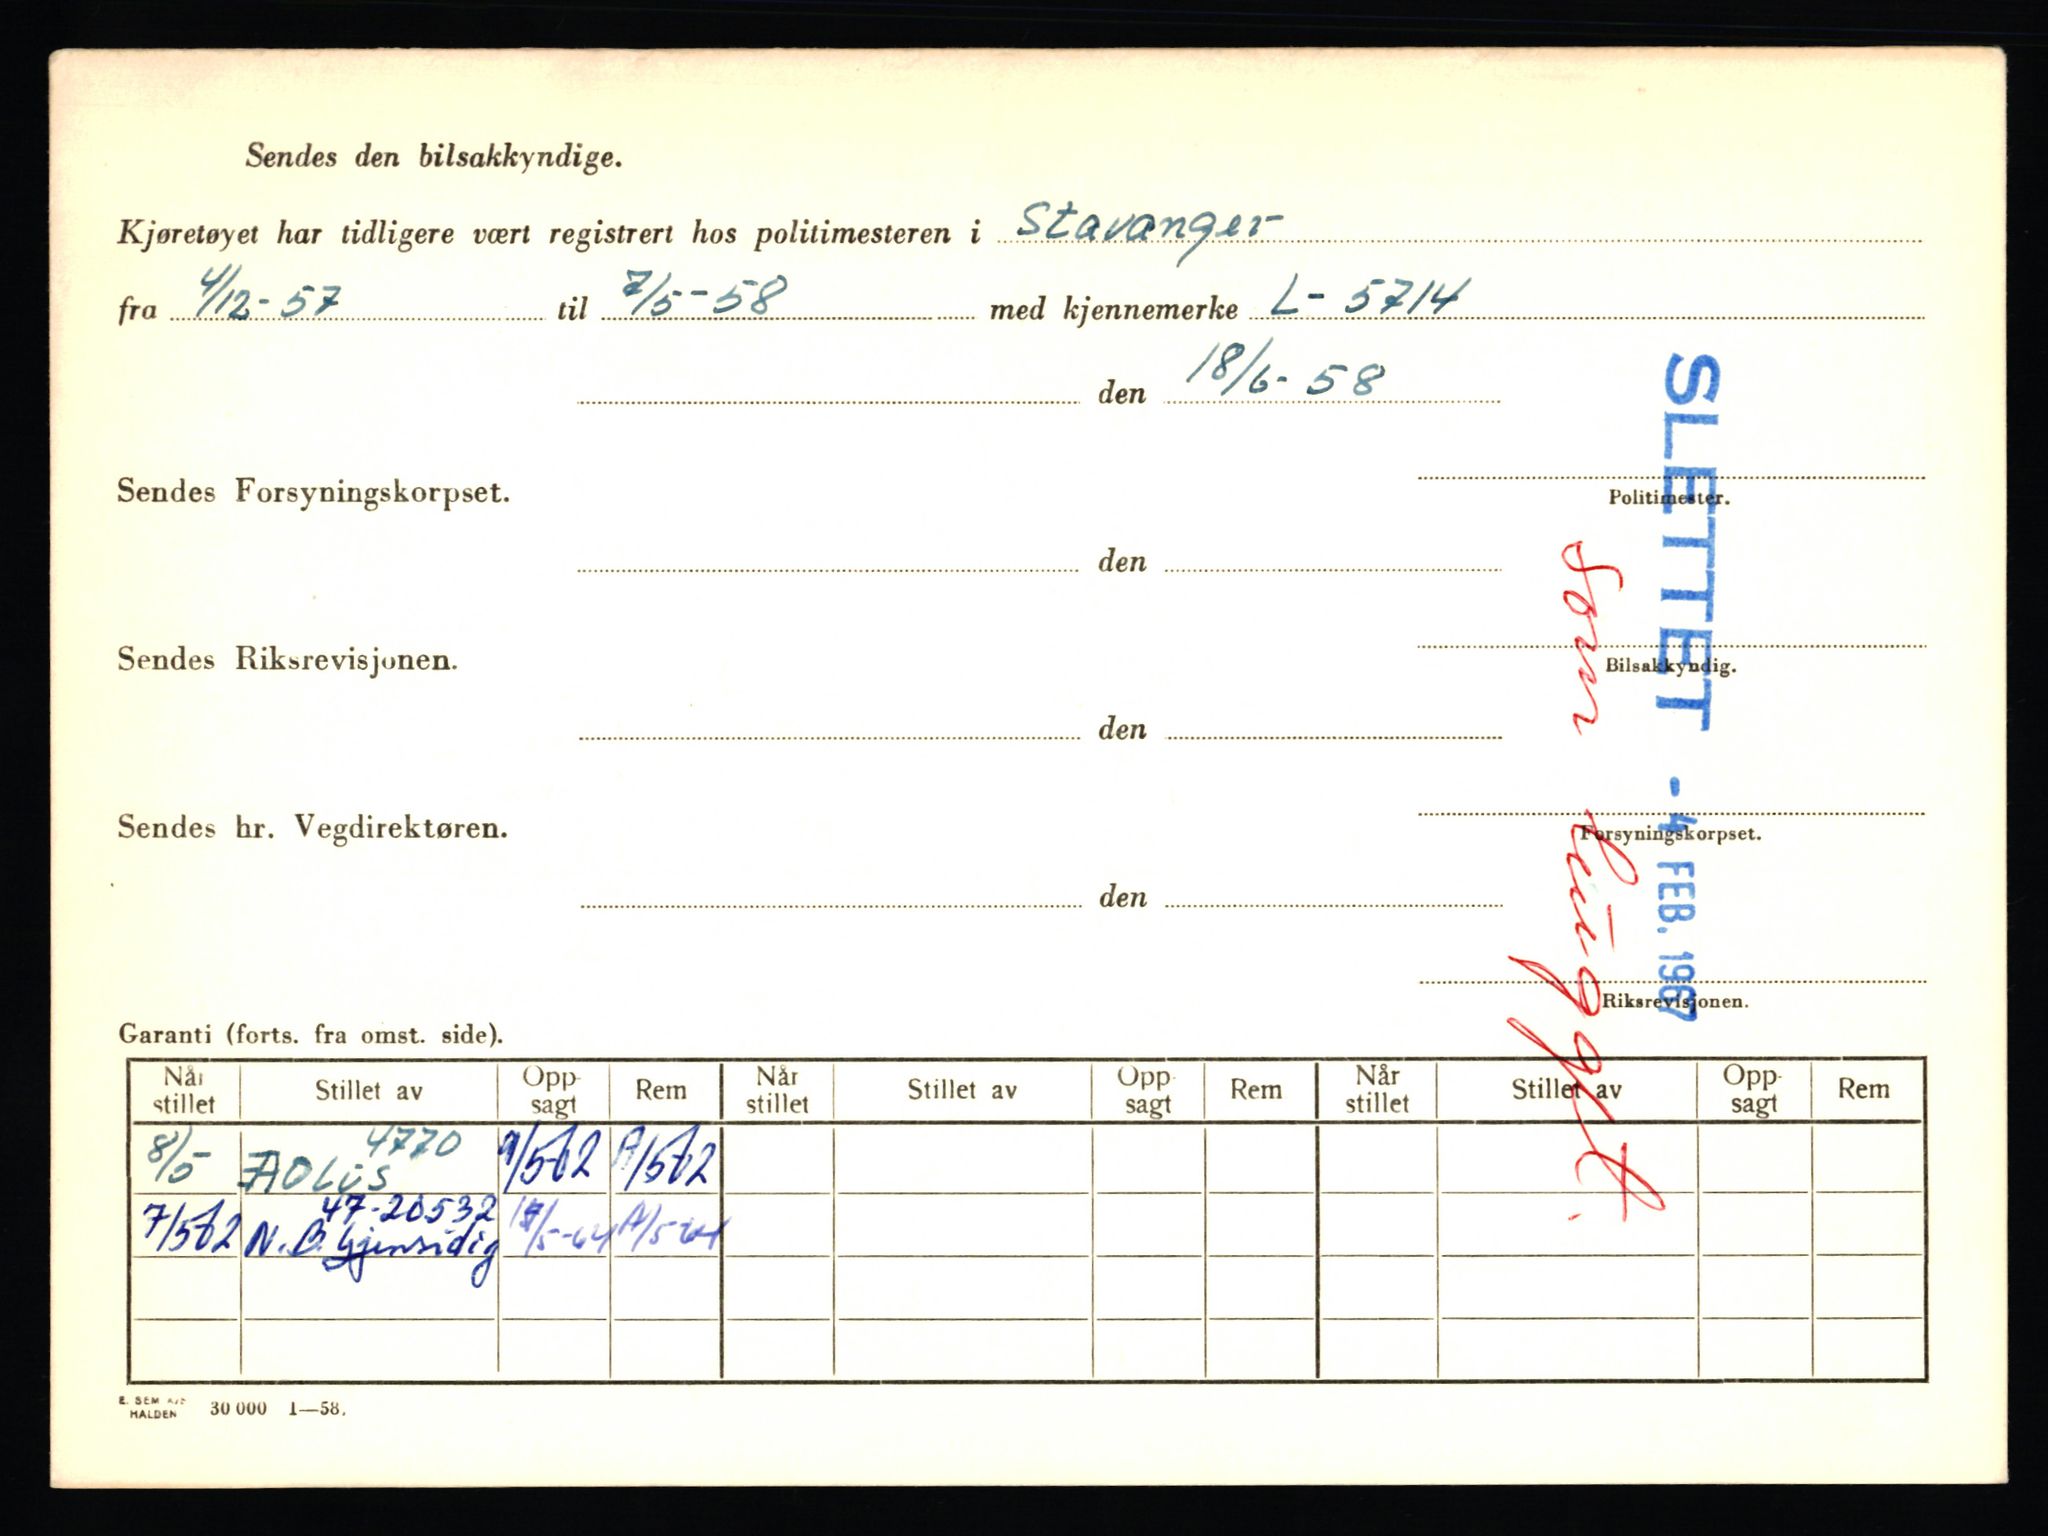 Sendes den bilsakkyndige.
Kjøretøyet har tidligere vært registrert hos politimesteren i Stavanger
fra 4/12-57 til 7/5-58 med kjennemerke L-5714
den 18/6-58
Sendes Forsyningskorpset.
Politimester.
den
Sendes Riksrevisjonen.
Bilsakkyndig.
den
Sendes hr. Vegdirektøren.
Forsyningskorpset.
den
Riksrevisjonen.
SLETTET - 4 FEB. 1967
Som
Garanti (forts. fra omst. side).
Når stillet Stillet av Opp-sagt Rem Når stillet Stillet av Opp-sagt Rem Når stillet Stillet av Opp-sagt Rem
4770
8/5
47-20532
7/562 N.B. Gjensidig
E. SEM A/S
HALDEN 30 000 1—58.